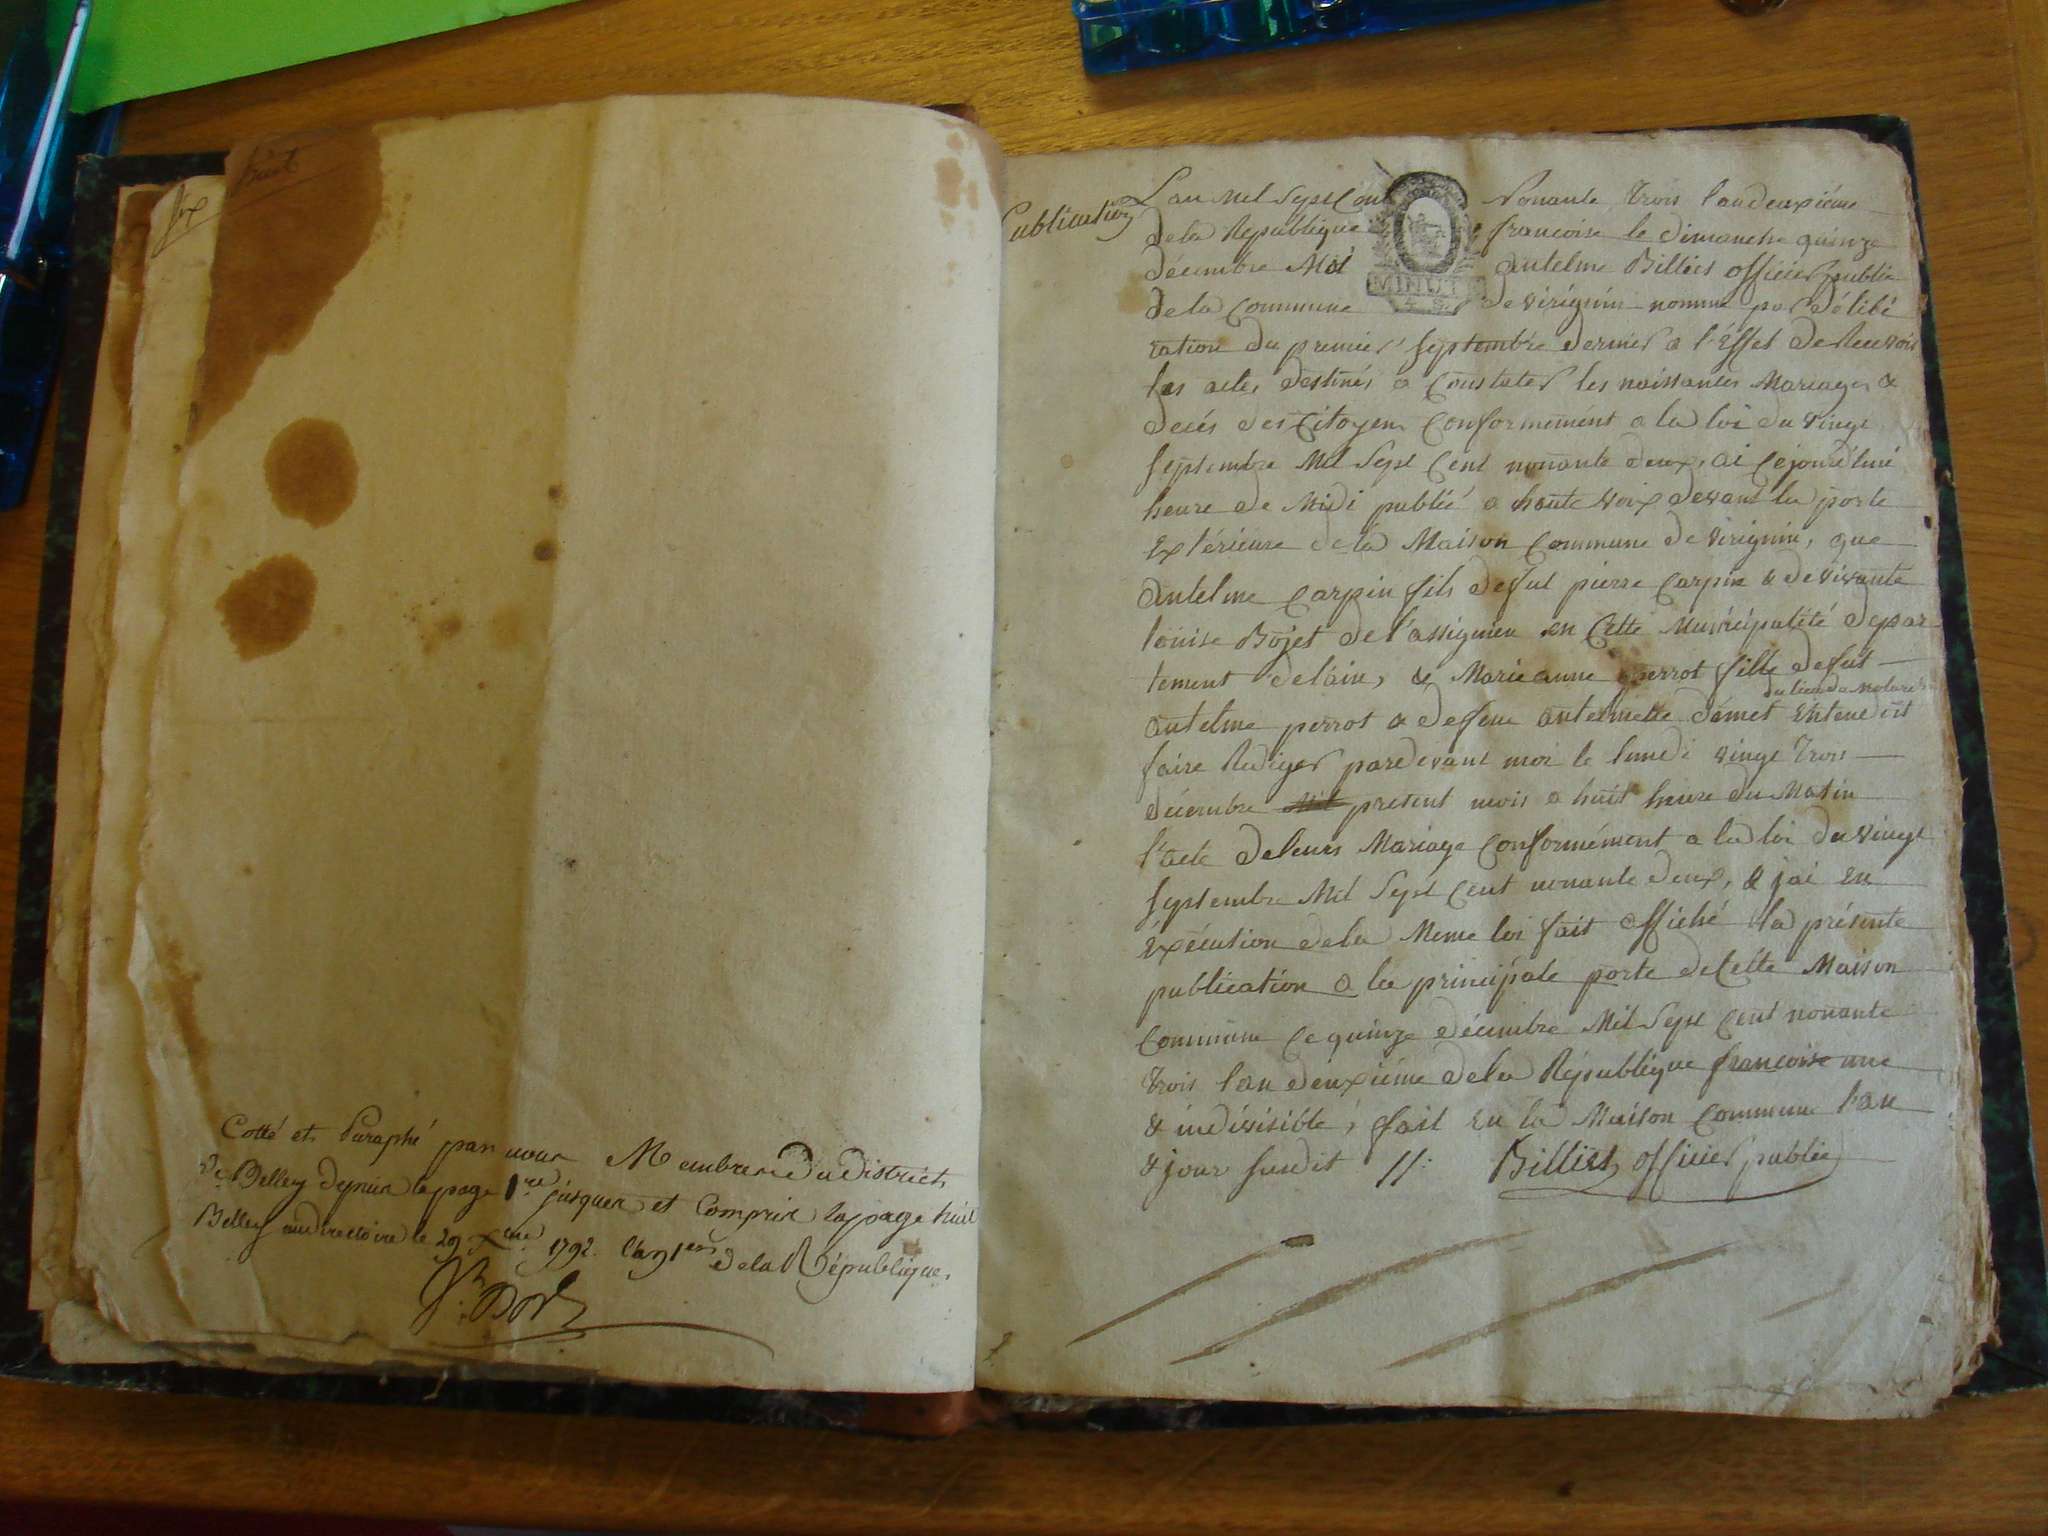 six
huit
Cotté et Paraphé par nous Membres du District
de Belley depuis la page 1re jusques et Compris la page huit
Belley au directoire le 29 Xbre 1792. l'an 1er de la République
Publication
L'an Mil Sept Cent Nonante Trois l'an deuxième
de la République francoise le dimanche quinze
décembre Moi antelme Billiet officier public
de la Commune de virignin nommé par délibé
MINUTE
ration du premier septembre dernier a l'Effet de Recevoir
les actes destinés a Constater les naissances Mariages &
décés des Citoyens Conformément a la loi du vingt
septembre Mil Sept Cent nonante deux, ai Cejourd'hui
heure de Midi publié a haute voix devant la porte
Extérieure de la Maison Commune de virignin, que
antelme Carpin fils de fut pierre Carpin & de vivante
louise Bojet de l'assignieu en Cette Municipalité depar
tement de l'ain, & Marie anne perrot fille de fut
du lieu de
antelme perrot & de feue antelmette démet Entendent
faire Rediger pardevant moi le lundi vingt Trois
décembre present mois a huit heure du Matin
l'acte de leurs Mariage Conformément a la loi du vingt
septembre Mil Sept Cent nonante deux, & jai En
Exécution de la Meme loi fait affiché la présente
publication a la principale porte de Cette Maison
Commune Ce quinze décembre Mil Sept Cent nonante
Trois l'an deuxième de la République francoise une
& indivisible, fait En la Maison Commune l'an
& jour susdit //: Billiet officier public